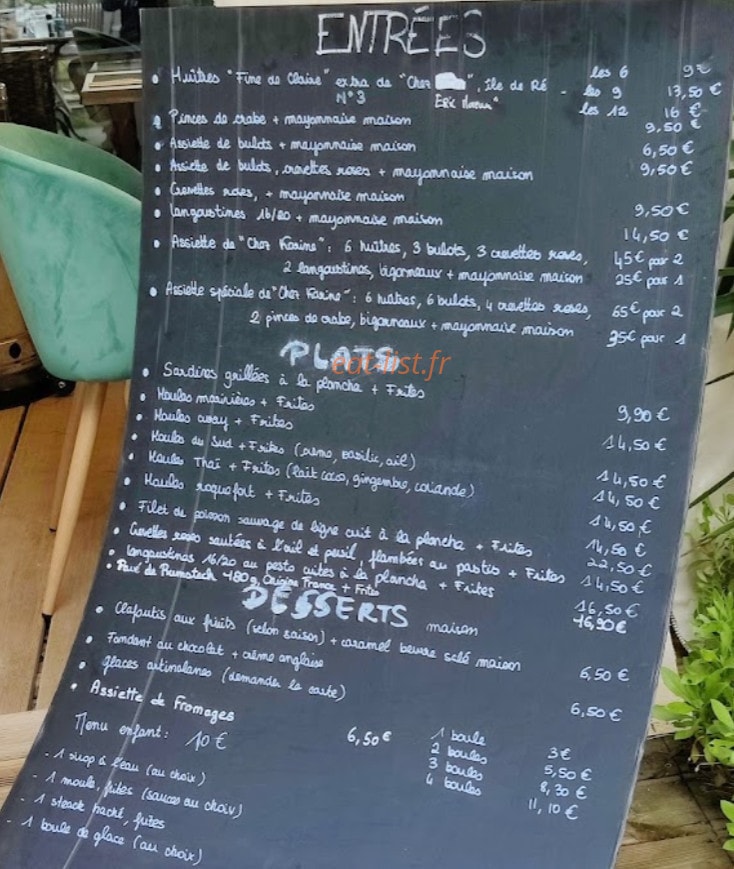 ENTRÉES
• Huîtres "Fine de Claire" extra de "Chez ", île de Ré - les 6 9€
N°3 Eric - les 9 13,50€
les 12 16€
• Pinces de crabe + mayonnaise maison 9,50€
• Assiette de bulots + mayonnaise maison 6,50€
• Assiette de bulots, crevettes roses + mayonnaise maison 9,50€
• Crevettes roses, + mayonnaise maison 9,50€
• Langoustines 16/20 + mayonnaise maison 14,50€
• Assiette de "Chez Karine": 6 huîtres, 3 bulots, 3 crevettes roses, 45€ pour 2
2 langoustines, bigorneaux + mayonnaise maison 25€ pour 1
• Assiette spéciale de "Chez Karine": 6 huîtres, 6 bulots, 4 crevettes roses, 65€ pour 2
2 pinces de crabe, bigorneaux + mayonnaise maison 35€ pour 1
PLATS
eat-list.fr
• Sardines grillées à la plancha + Frites 9,90€
• Moules marinières + Frites 14,50€
• Moules curry + Frites 14,50€
• Moules du Sud + Frites (crème, basilic, ail) 14,50€
• Moules Thaï + Frites (lait coco, gingembre, coriande) 14,50€
• Moules roquefort + Frites 14,50€
• Filet de poisson sauvage de ligne cuit à la plancha + Frites 22,50€
• Crevettes roses sautées à l'ail et persil, flambées au pastis + Frites 14,50€
• Langoustines 16/20 au pesto cuites à la plancha + Frites 16,50€
• Pavé de Rumsteck 180g, Origine France + Frites 16,90€
DESSERTS maison
• Clafoutis aux fruits (selon saison) + caramel beurre salé maison 6,50€
• Fondant au chocolat + crème anglaise 6,50€
• glaces artisanales (demander la carte)
• Assiette de Fromages 6,50€
1 boule 3€
2 boules 5,50€
3 boules 8,30€
4 boules 11,10€
Menu enfant: 10€
- 1 sirop à l'eau (au choix)
- 1 moule, frites (sauces au choix)
- 1 steack haché, frites
- 1 boule de glace (au choix)